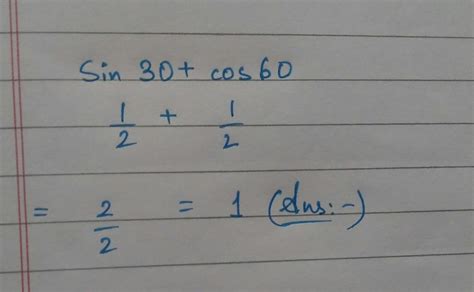 Sin 30 + cos 60
1/2 + 1/2
= 2/2 = 1 (Ans:-)